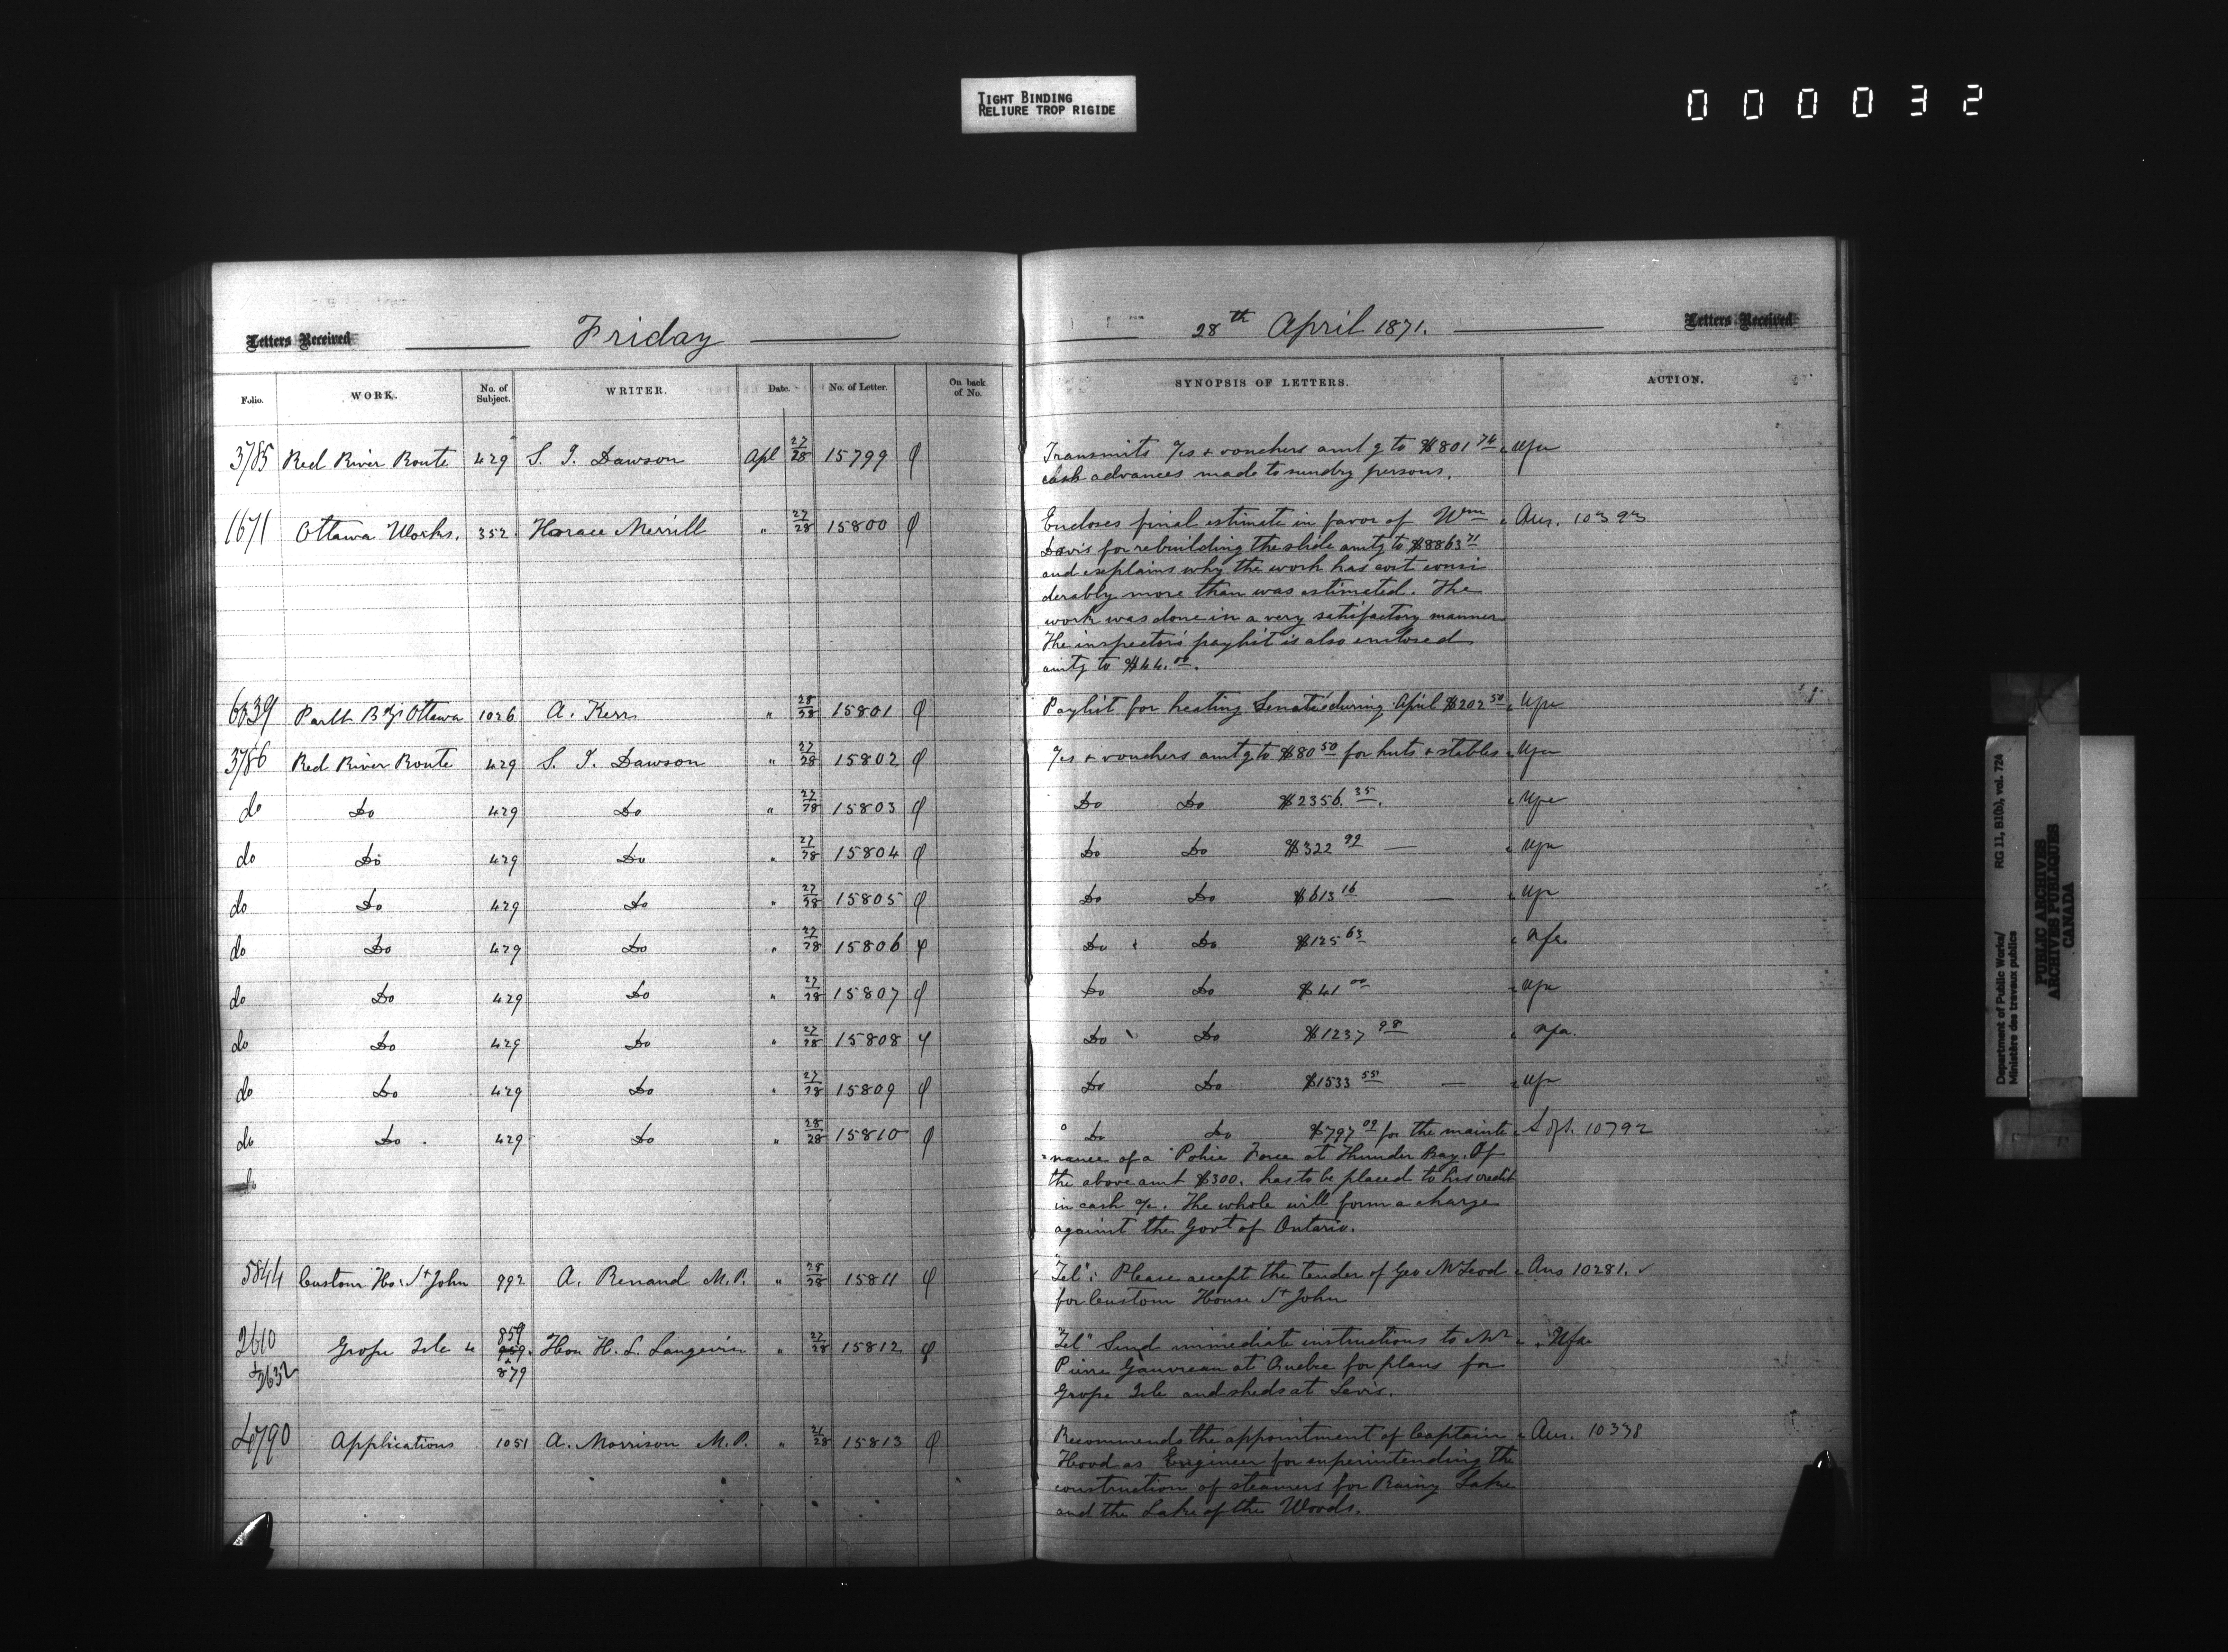 TIGHT BINDING
RELIURE TROP RIGIDE
000032
Letters Received
Friday
28th April 1871.
Letters Received
Folio. WORK. No. of Subject. WRITER. Date. No. of Letter. On back of No. SYNOPSIS OF LETTERS. ACTION.
3785 Red River Route 429 S. J. Dawson Apl 27/28 15799 Transmits /cs & vouchers amtg to $801 74
cash advances made to sundry persons.
1671 Ottawa Works. 352 Horace Merrill " 27/28 15800 Encloses final estimate in favor of Wm Ans. 10393
Davis for rebuilding the slide amtg to $8863 71
and explains why the work has cost consi
derably more than was estimated. The
work was done in a very satisfactory manner
The inspector's paylist is also enclosed
amtg to $44.00.
6039 Parlt Bdgs Ottawa 1026 A. Kerr " 28/28 15801 Paylist for heating Senate during April $202 50
3786 Red River Route 429 S. J. Dawson " 27/28 15802 /cs & vouchers amtg to $80 50 for huts & stables
do Do 429 Do " 27/28 15803 Do Do $2356.35.
do Do 429 Do " 27/28 15804 Do Do $322 92
do Do 429 Do " 27/28 15805 Do Do $613 16
do Do 429 Do " 27/28 15806 Do Do $125 63
do Do 429 Do " 27/28 15807 Do Do $41 00
do Do 429 Do " 27/28 15808 Do Do $1237 98
do Do 429 Do " 27/28 15809 Do Do $1533 55
do Do 429 Do " 28/28 15810 Do Do $797 09 for the mainte 10792
nance of a Police Force at Thunder Bay. Of
do the above amt $300. has to be placed to his credit
in cash a/c. The whole will form a charge
against the Govt of Ontario.
5844 Custom Ho: St John 992 A. Renaud M.P. " 28/28 15811 Tel": Please accept the tender of Geo McLeod Ans 10281.
for Custom House St John
2610 & 2632 Grosse Isle &c 859 959 & 879 Hon H. L. Langevin " 27/28 15812 Tel" Send immediate instructions to Mr
Pierre Gauvreau at Quebec for plans for
Grosse Isle and sheds at Levis.
4790 Applications 1051 A. Morrison M.P. " 21/28 15813 Recommends the appointment of Captain Ans. 10338
Hood as Engineer for superintending the
construction of steamers for Rainy Lake
and the Lake of the Woods.
Department of Public Works/ RG 11, B1(b), vol. 724
Ministère des travaux publics
PUBLIC ARCHIVES
ARCHIVES PUBLIQUES
CANADA